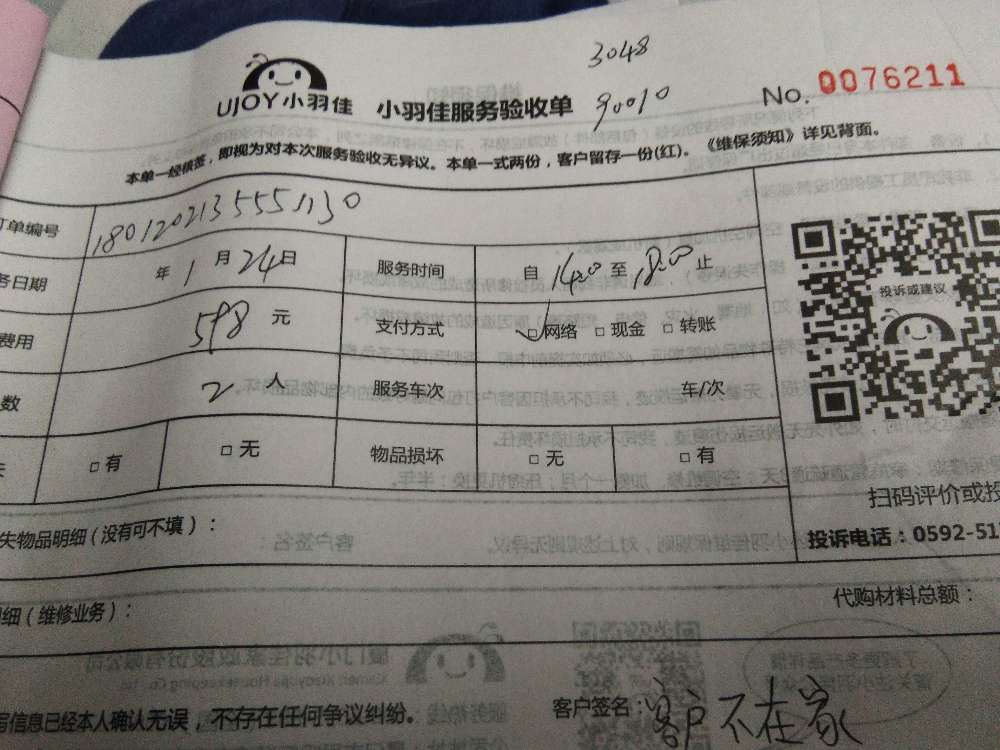 3048
UJOY小羽佳 小羽佳服务验收单 90010 No. 0076211
本单一经核签，即视为对本次服务验收无异议。本单一式两份，客户留存一份(红)。《维保须知》详见背面。
订单编号 1801202135551130
务日期 年 1 月 24 日 服务时间 自 14:00 至 18:00 止
费用 598 元 支付方式 □网络 □现金 □转账
人数 2 人 服务车次 车/次
□有 □无 物品损坏 □无 □有
投诉或建议
扫码评价或投
失物品明细（没有可不填）：
投诉电话：0592-51
细（维修业务）： 代购材料总额：
写信息已经本人确认无误，不存在任何争议纠纷。 客户签名：客户不在家